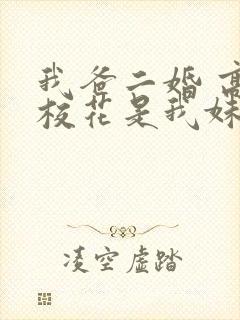 我爸二婚高
校花是我妹
凌空虚踏